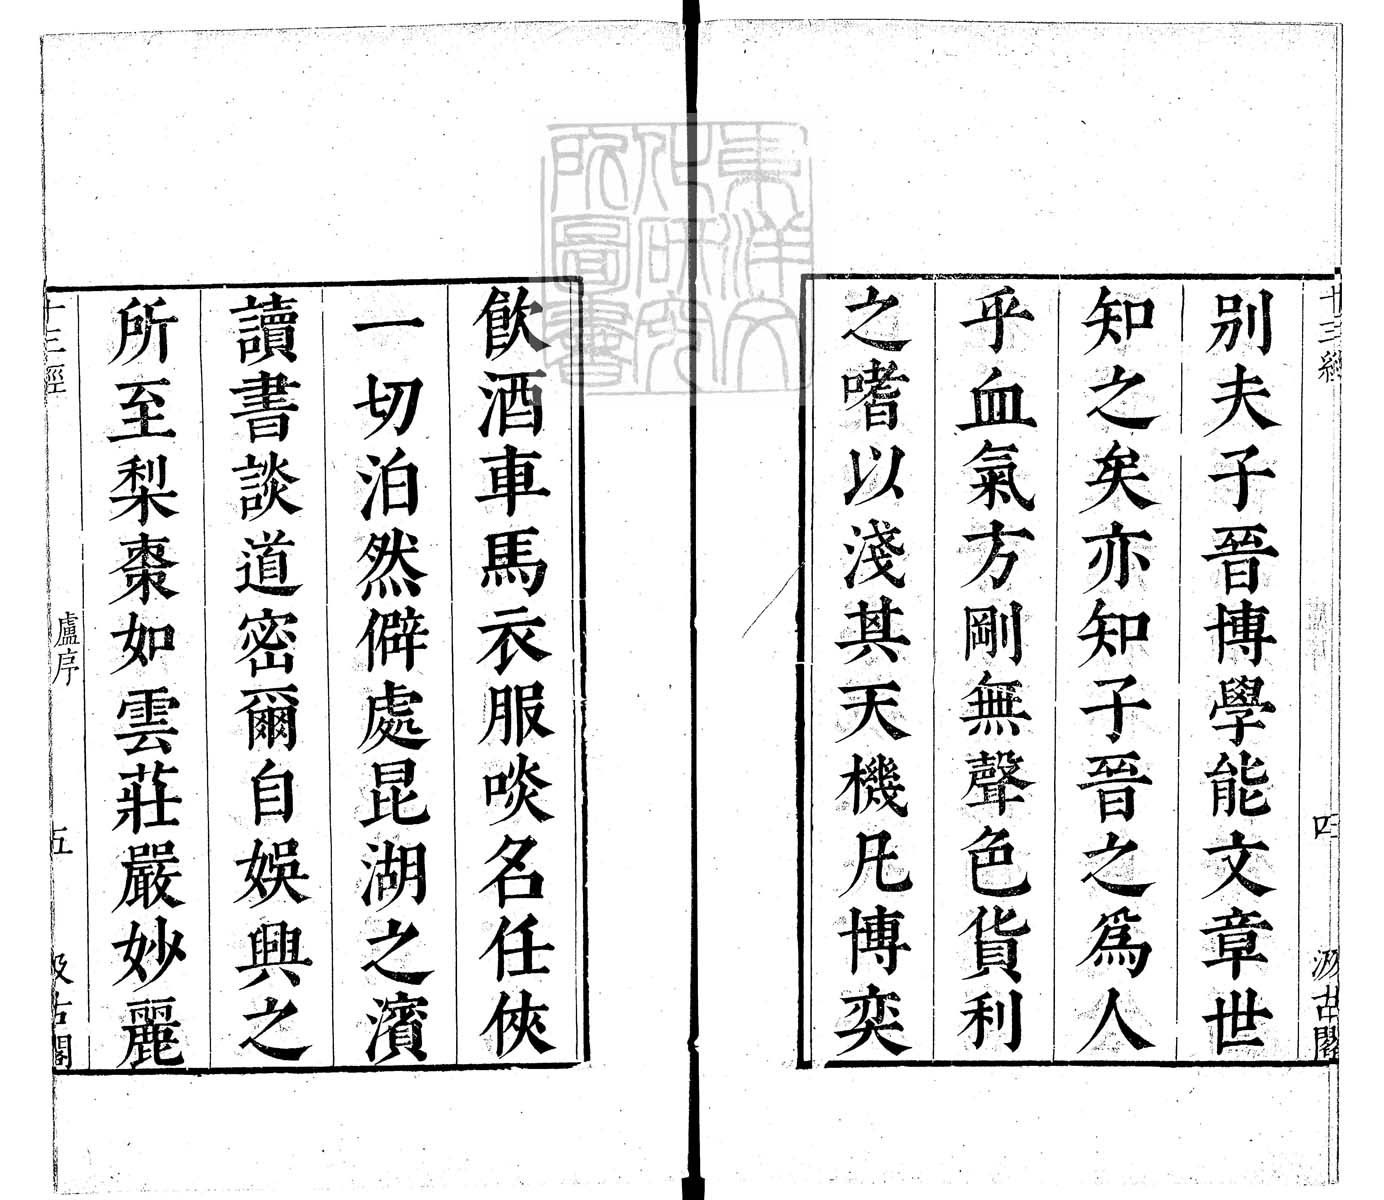 十三經
四
汲古閣
别夫子晉博學能文章世
知之矣亦知子晉之爲人
乎血氣方剛無聲色貨利
之嗜以淺其天機凡博奕
飲酒車馬衣服啖名任俠
一切泊然僻處昆湖之濱
讀書談道密爾自娛興之
所至梨棗如雲莊嚴妙麗
十三經
盧序
五
汲古閣
東洋文
化研究
所圖書